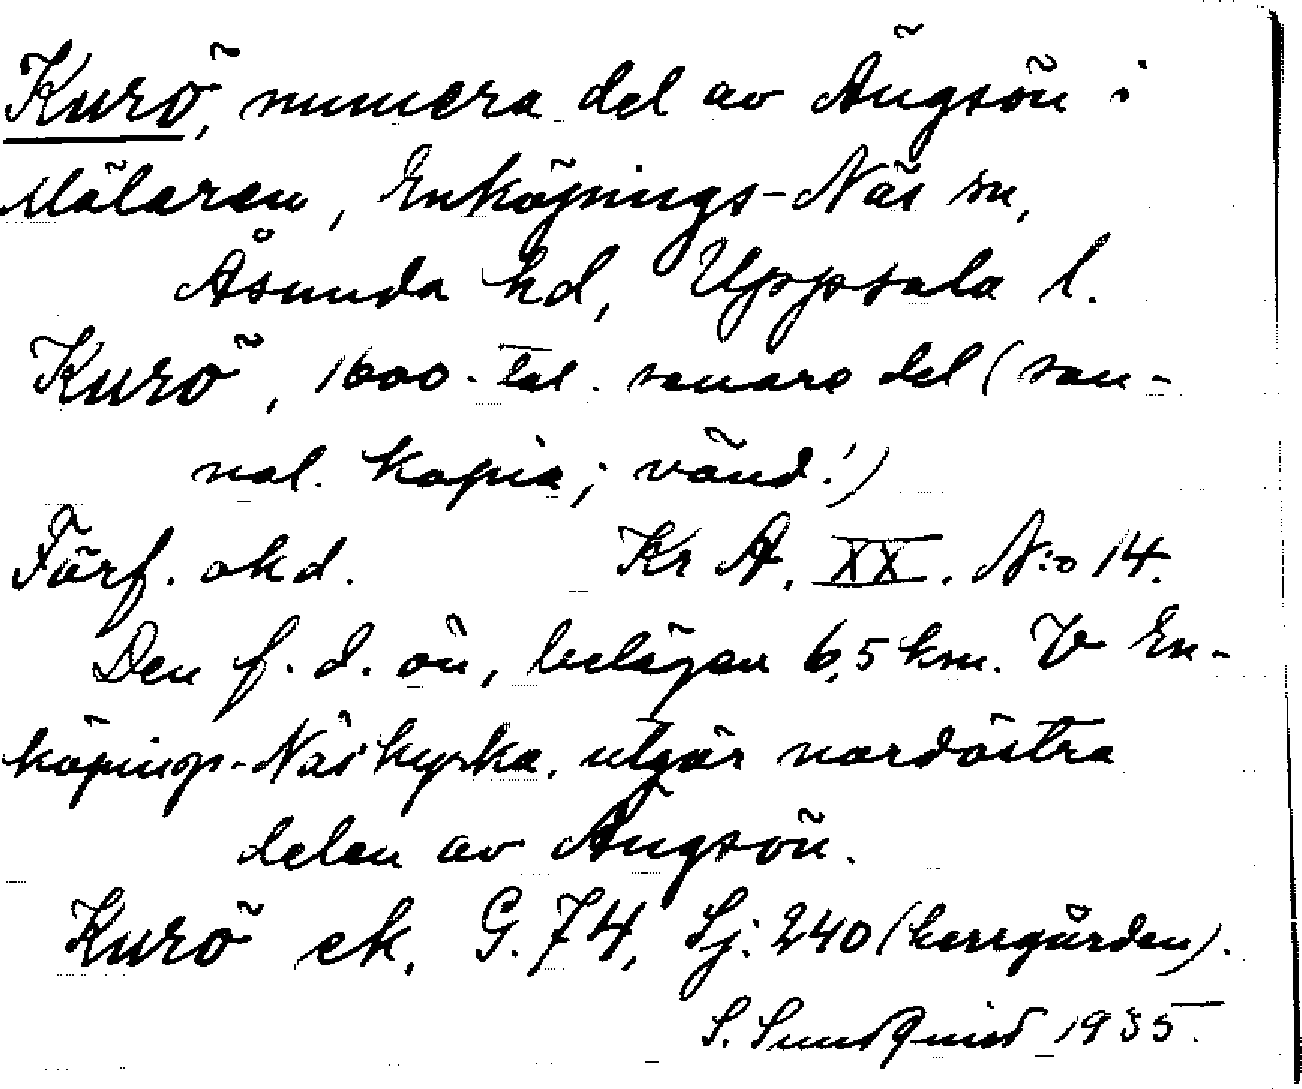 Kurö, numera del av Ängsön i
Mälaren, Enköpings-Näs sn,
Åsunda hd, Uppsala l.
Kurö, 1600-tal. senare del (san-
nol. kopia; vänd!)
Förf. okd. Kr A. XX. N:o 14.
Den f. d. ön, belägen 6,5 km. V En-
köpings-Näs kyrka. utgör nordöstra
delen av Ängsön.
Kurö ek. G. 74, Sj: 240 (herrgården).
S. Sundquist 1935.